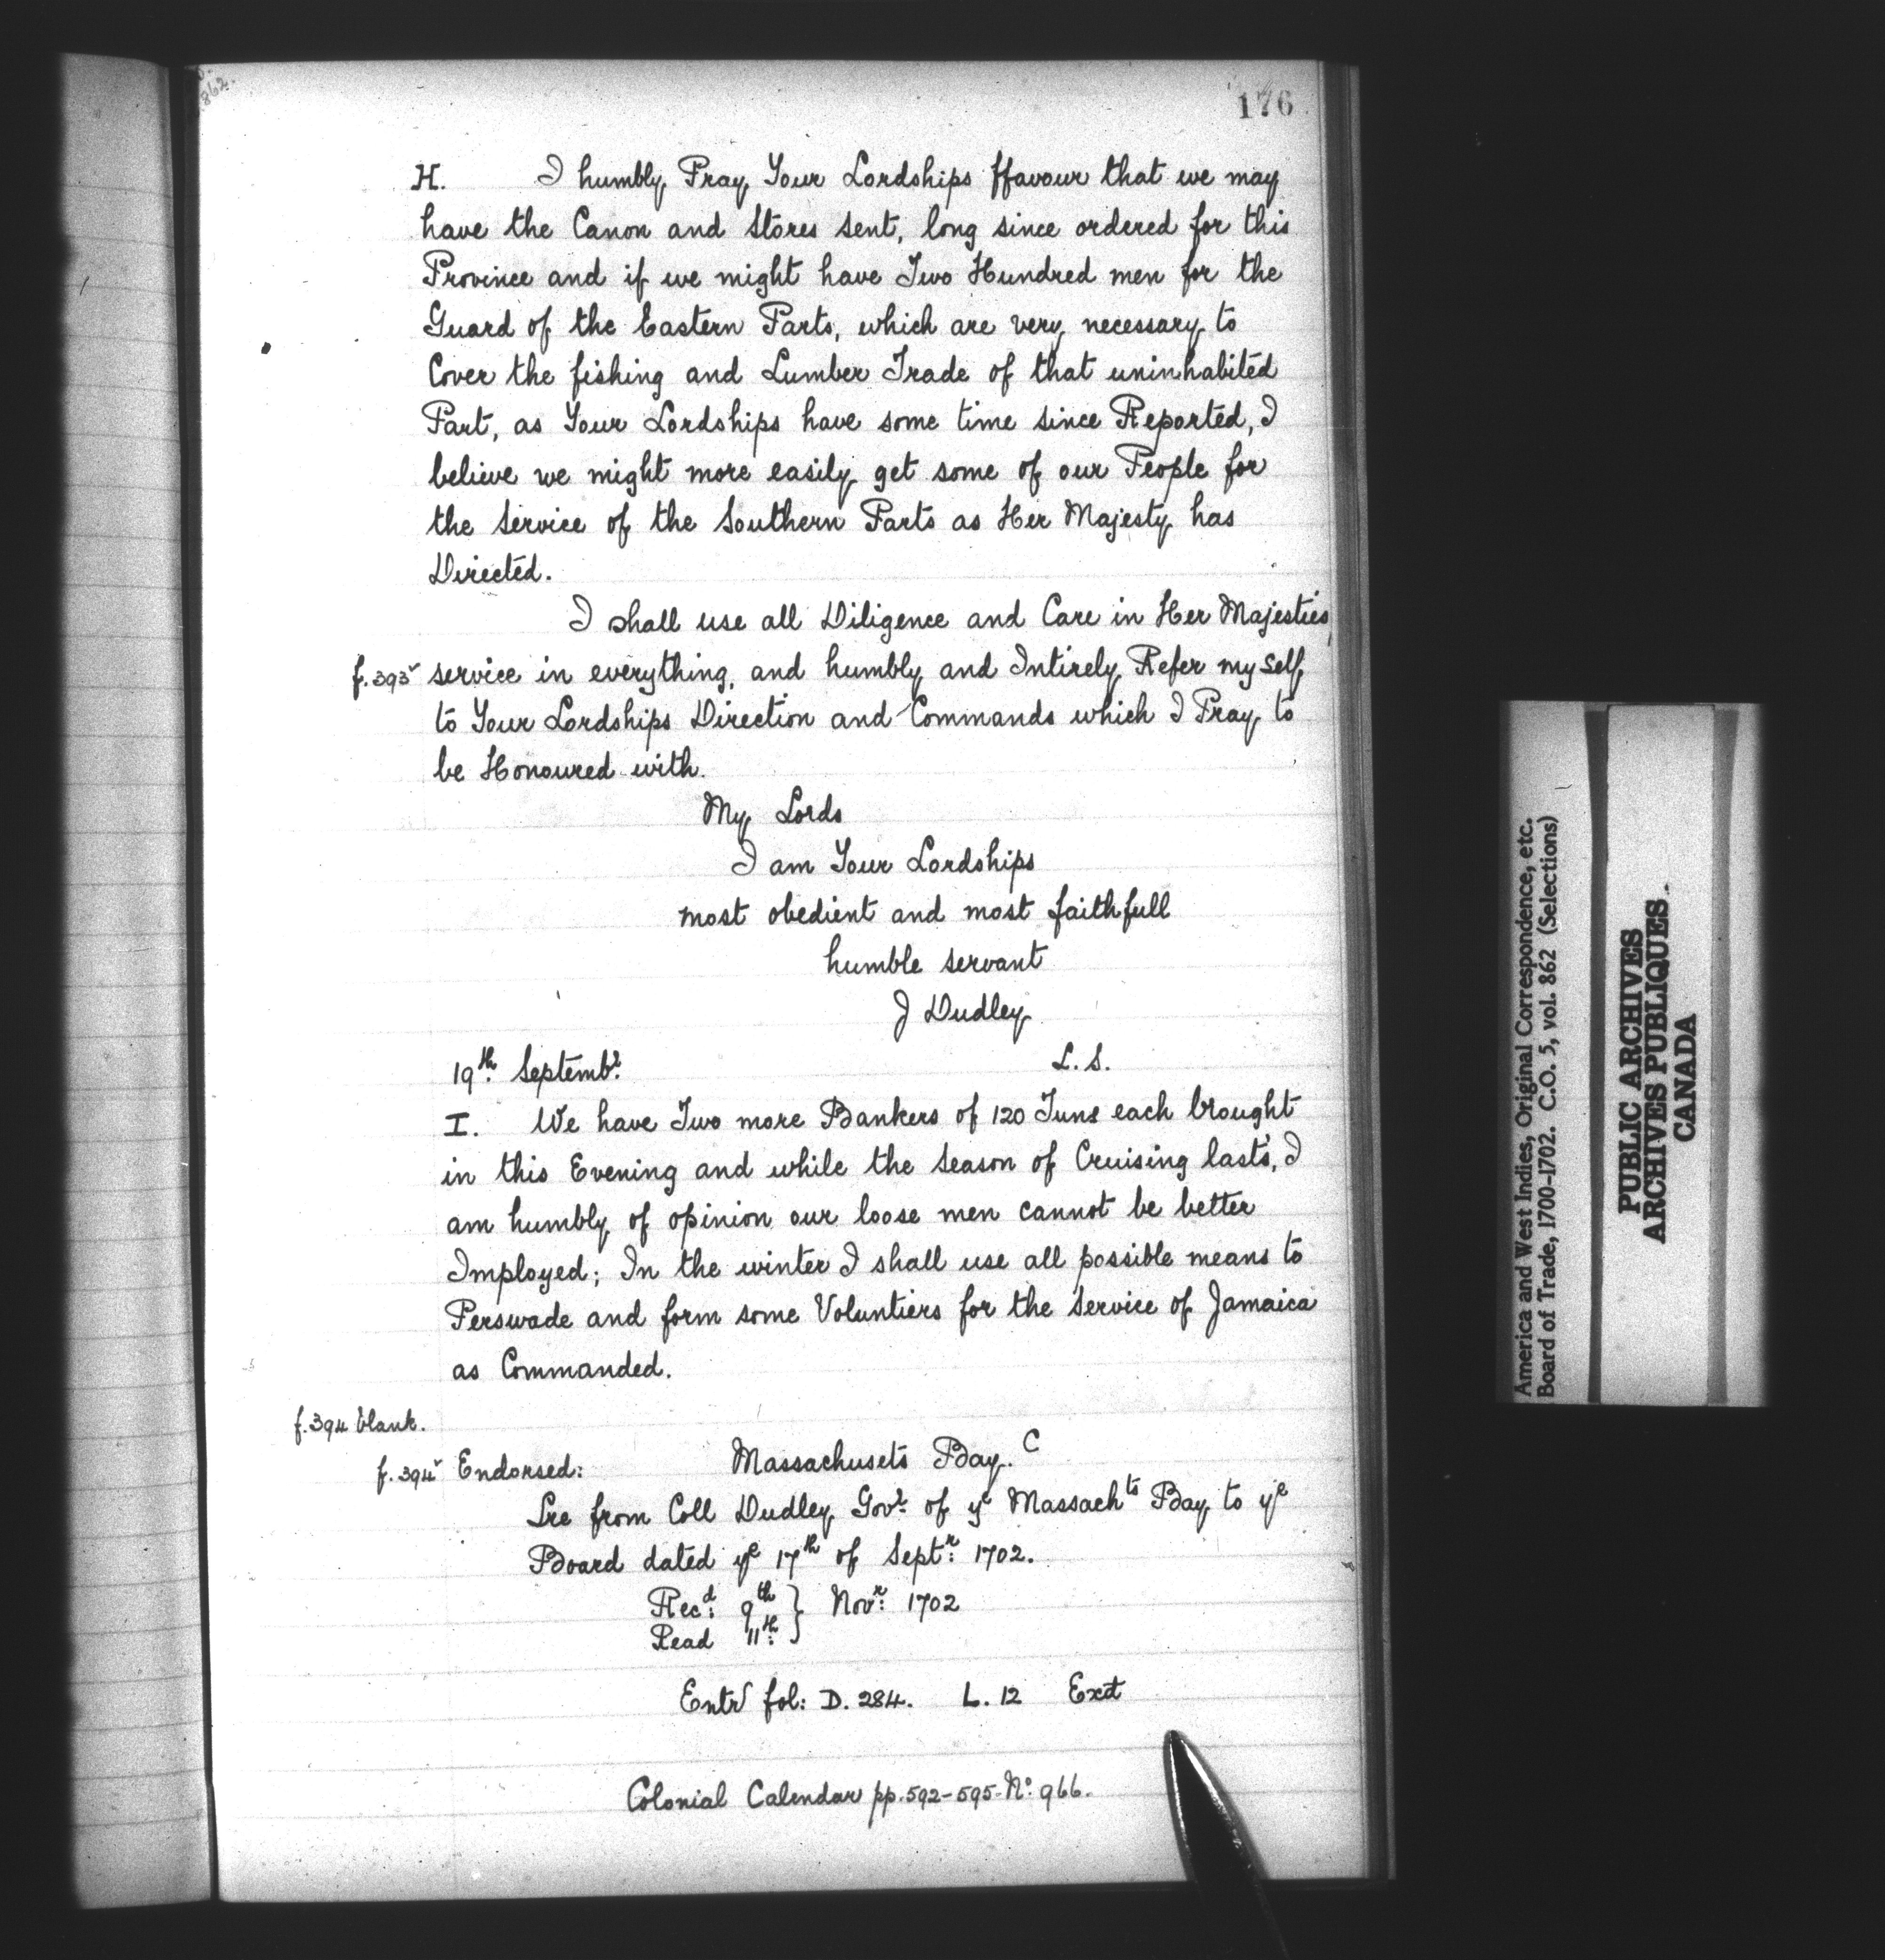 862.
176
H. I humbly Pray Your Lordships ffavour that we may
have the Canon and Stores sent, long since ordered for this
Province and if we might have Two Hundred men for the
Guard of the Eastern Parts, which are very necessary to
Cover the fishing and Lumber Trade of that uninhabited
Part, as Your Lordships have some time since Reported, I
believe we might more easily get some of our People for
the Service of the Southern Parts as Her Majesty has
Directed.
I shall use all Diligence and Care in Her Majesties
f.393v service in everything, and humbly and Intirely Refer my self
to Your Lordships Direction and Commands which I Pray to
be Honoured with.
My Lords
I am Your Lordships
most obedient and most faithfull
humble servant
J Dudley
19th Septembr. L.S.
I. We have Two more Bankers of 120 Tuns each brought
in this Evening and while the Season of Cruising lasts, I
am humbly of opinion our loose men cannot be better
Imployed; In the winter I shall use all possible means to
Perswade and form some Voluntiers for the Service of Jamaica
as Commanded.
f.394 blank.
f.394v Endorsed: Massachusets Bay. C
Lre from Coll Dudley Govr. of ye Massachts Bay to ye
Board dated ye 17th of Septr: 1702.
Recd: 9th } Novr: 1702
Read 11th: }
Entd fol: D. 284. L. 12 Exd
Colonial Calendar pp. 592-595. No. 966.
America and West Indies, Original Correspondence, etc.
Board of Trade, 1700-1702. C.O. 5, vol. 862 (Selections)
PUBLIC ARCHIVES
ARCHIVES PUBLIQUES
CANADA